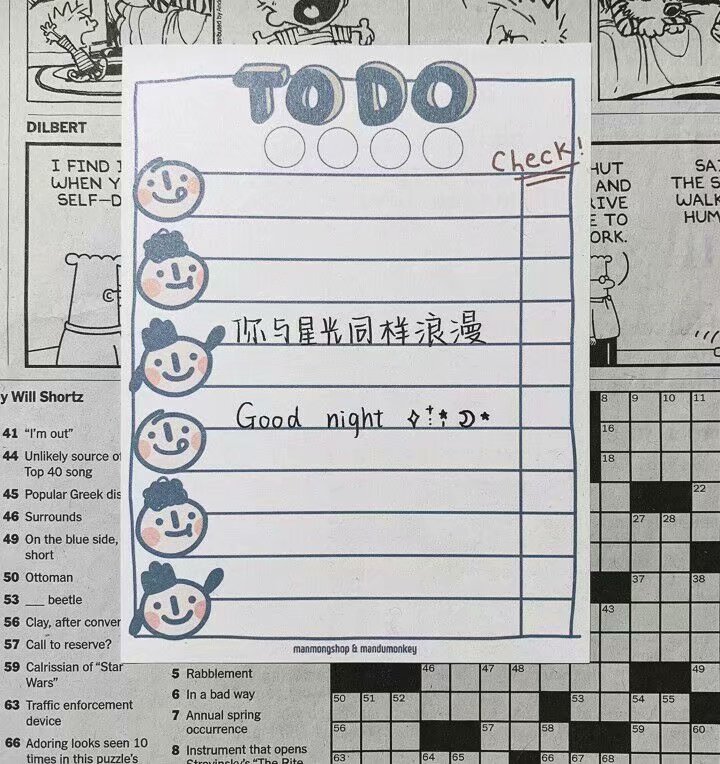 DILBERT
I FIND
WHEN Y
SELF-D
HUT
AND
IVE
E TO
ORK.
SA
THE S
WALK
HUM
TO DO
Check!
你与星光同样浪漫
Good night
manmongshop & mandumonkey
y Will Shortz
41 "I'm out"
44 Unlikely source of
Top 40 song
45 Popular Greek dis
46 Surrounds
49 On the blue side,
short
50 Ottoman
53 ___ beetle
56 Clay, after conver
57 Call to reserve?
59 Calrissian of "Star
Wars"
63 Traffic enforcement
device
66 Adoring looks seen 10
times in this puzzle's
5 Rabblement
6 In a bad way
7 Annual spring
occurrence
8 Instrument that opens
Stravinsky's "The Rite
8 9 10 11
16
18
22
27 28
37 38
43
46 47 48 49
50 51 52 53 54 55
56 57 58 59 60
63 64 65 66 67 68